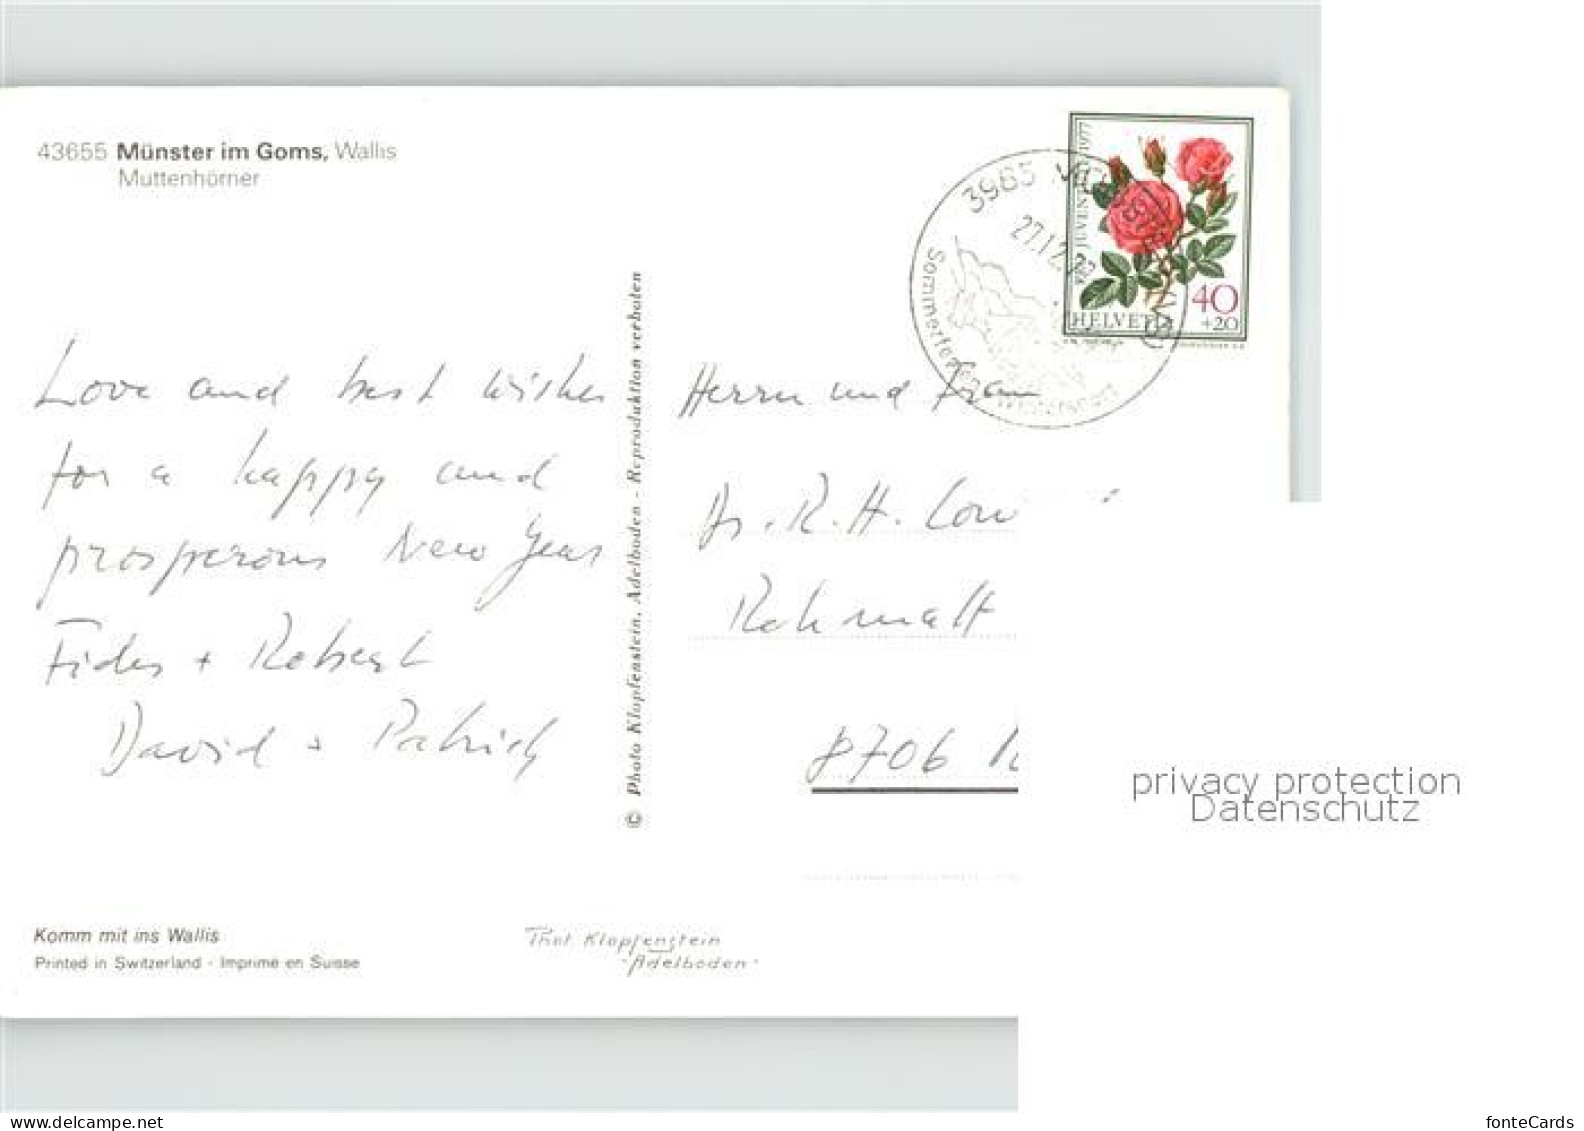 43655 Münster im Goms, Wallis
Muttenhörner
3985
27.12.
Sommerferien Wintersport
PRO JUVENTUTE 1977
40
+20
HELVETIA
Love and best wishes
for a happy and
prosperous New Year
Fides + Robert
David + Patrick
© Photo Klopfenstein, Adelboden - Reproduktion verboten
Herrn und Frau
Dr. R. H.
8706
Komm mit ins Wallis
Printed in Switzerland - Imprimé en Suisse
Phot Klopfenstein
Adelboden
privacy protection
Datenschutz
www.delcampe.net
fonteCards